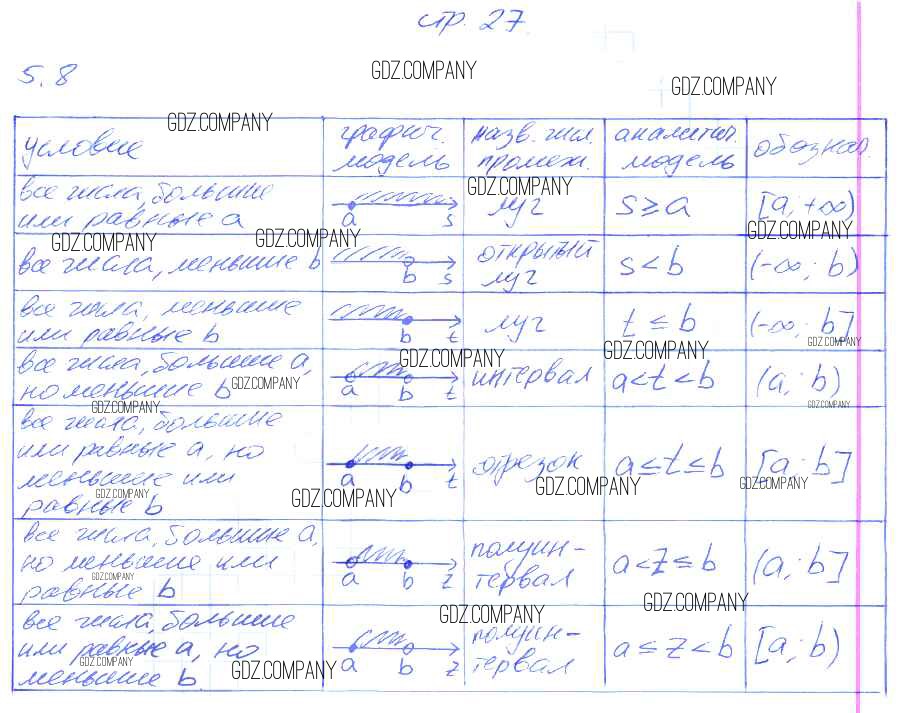 стр. 27
5.8
GDZ.COMPANY
GDZ.COMPANY
GDZ.COMPANY
условие
графич. модель
назв. чис. промеж.
аналитич. модель
обознач.
все числа, большие
или равные a
a s
GDZ.COMPANY
луч
s ≥ a
[a, +∞)
GDZ.COMPANY
GDZ.COMPANY
GDZ.COMPANY
все числа, меньшие b
b s
открытый
луч
s < b
(-∞; b)
все числа, меньшие
или равные b
b t
луч
t ≤ b
(-∞; b]
GDZ.COMPANY
GDZ.COMPANY
GDZ.COMPANY
все числа, большие a,
но меньшие b
GDZ.COMPANY
a b t
интервал
a < t < b
(a; b)
GDZ.COMPANY
GDZ.COMPANY
все числа, большие
или равные a, но
меньшие или
равные b
a b t
отрезок
a ≤ t ≤ b
[a; b]
GDZ.COMPANY
GDZ.COMPANY
GDZ.COMPANY
GDZ.COMPANY
все числа, большие a,
но меньшие или
равные b
GDZ.COMPANY
a b z
полуин-
тервал
a < z ≤ b
(a; b]
GDZ.COMPANY
GDZ.COMPANY
все числа, большие
или равные a, но
меньшие b
GDZ.COMPANY
GDZ.COMPANY
a b z
полуин-
тервал
a ≤ z < b
[a; b)